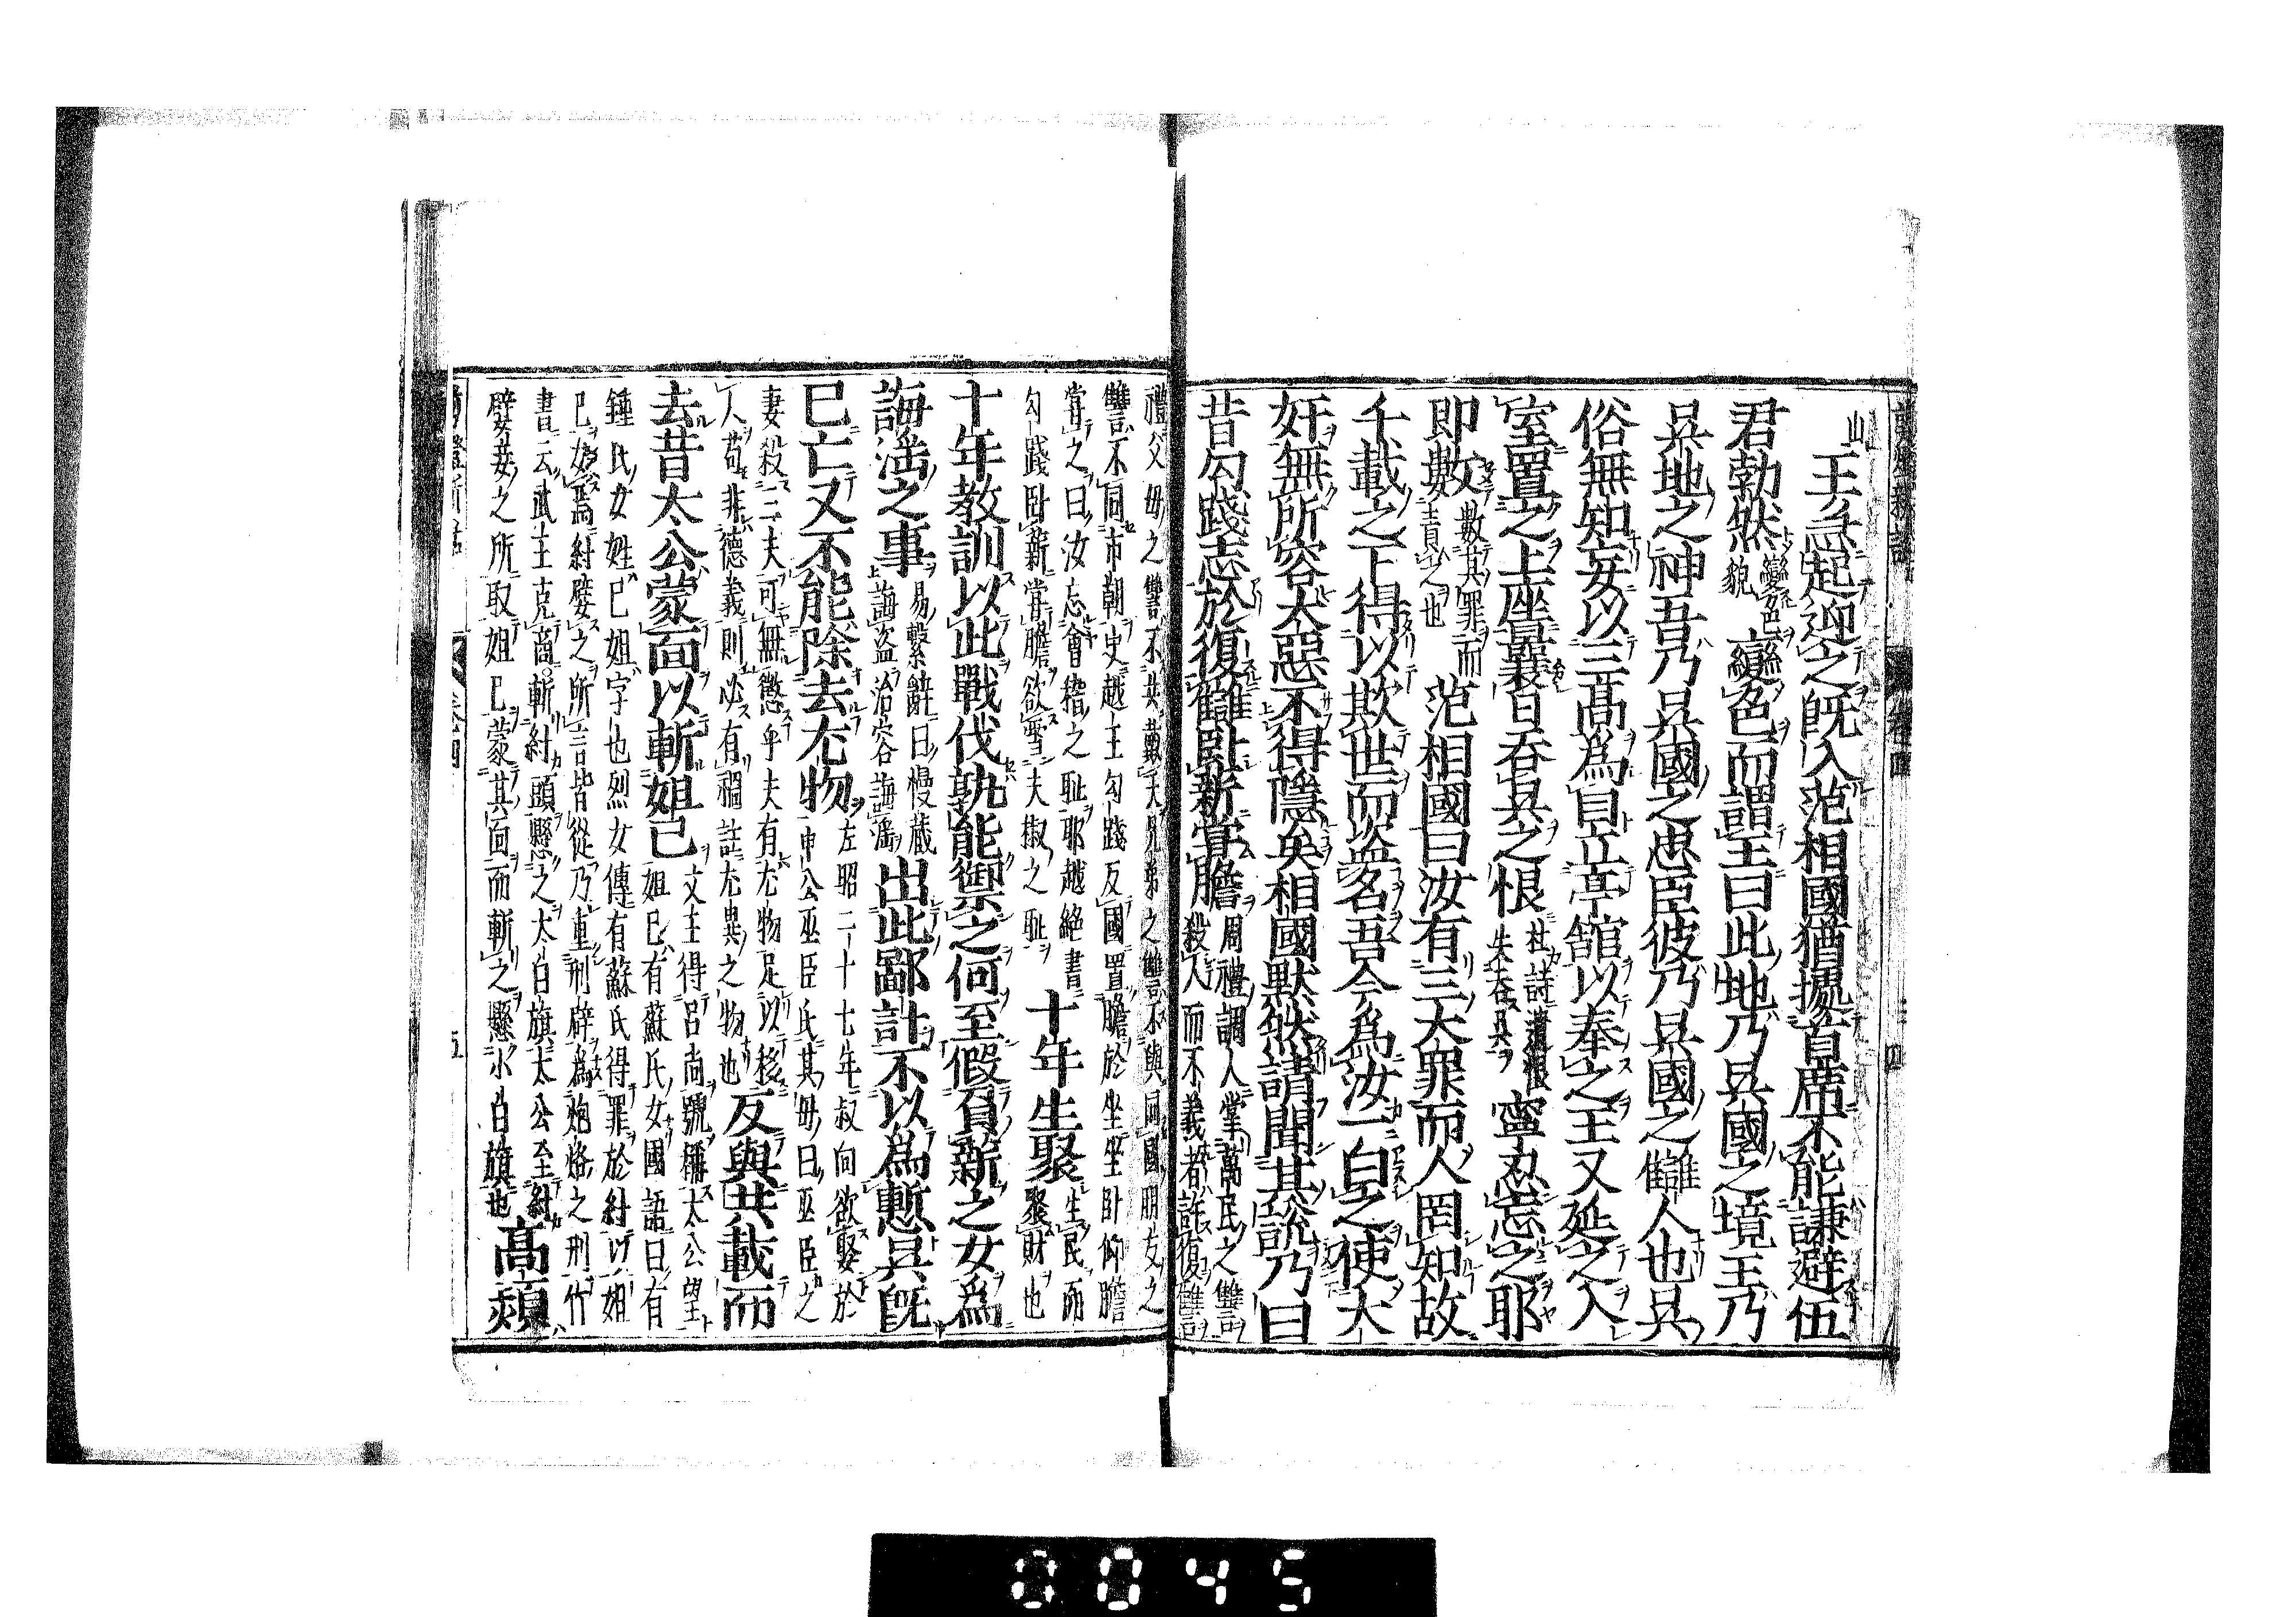 剪燈新話 卷四 四
山 王急起迎之既入范相國猶據首席不能謙避伍
君勃然變色貌變色而謂王曰此地乃吳國之境王乃
吳地之神吾乃吳國之忠臣彼乃吳國之讎人也吳
俗無知妄以三高爲目立亭舘以奉之王又延之入
室置之上座曩日吞吳之恨杜詩遺恨失吞吳寧忍忘之耶
即數數其罪而責之也范相國曰汝有三大罪而人罔知故
千載之下得以欺世而盜名吾今爲汝一白之使大
奸無所容大惡不得隱矣相國默然請聞其說乃曰
昔勾踐志於復讎臥薪嘗膽周禮調人掌萬民之讐殺人而不義者許復讎
禮父母之讐不共戴天兄弟之讐不與同國朋友之
讐不同市朝史越王勾踐反國置膽於坐坐臥仰膽
嘗之曰汝忘會稽之耻耶越絕書
勾踐臥薪嘗膽欲雪夫椒之耻十年生聚生民而聚財也
十年教訓以此戰伐孰能禦之何至假負薪之女爲
誨淫之事易繫辭曰慢藏誨盜冶容誨淫出此鄙計不以爲慙吳既
已亡又不能除去尤物左昭二十七年叔向欲娶於申公巫臣氏其母曰巫臣之
妻殺三夫可無懲乎夫有尤物足以移
人苟非德義則必有禍註尤異之物也反與共載而
去昔太公蒙面以斬妲己文王得呂尚號稱太公望妲己有蘇氏女國語曰有
錘氏女姓己妲字也烈女傳有蘇氏得罪於紂以妲
己女焉紂嬖之所言皆從乃重刑辟爲炮烙之刑竹
書云武王克商斬紂頭懸之太白旗太公至紂
嬖妾之所取妲己蒙其面而斬之懸小白旗也高熲
卷四 五